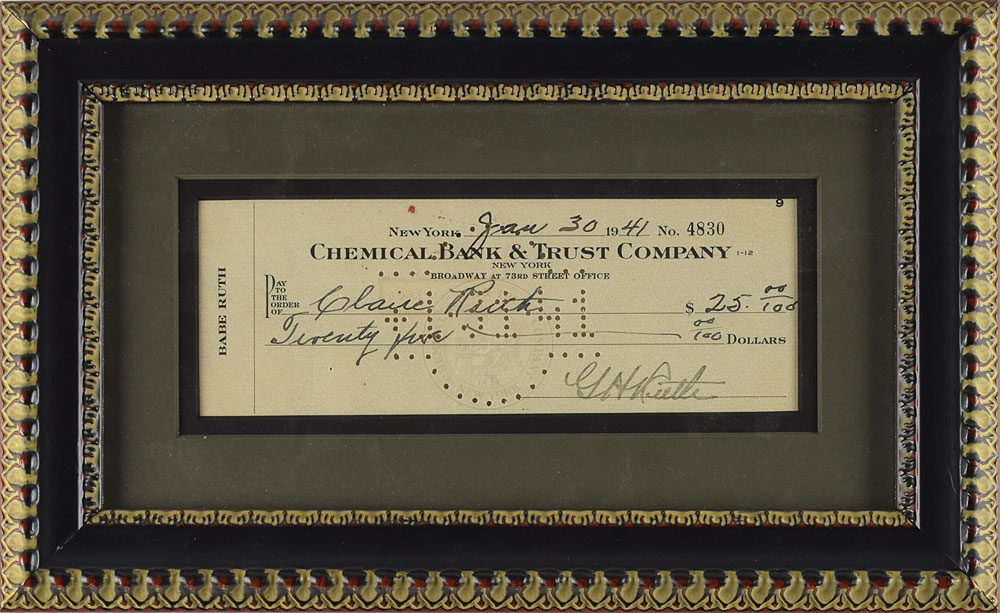 9
NEW YORK, Jan 30 1941 No. 4830
CHEMICAL BANK & TRUST COMPANY 1-12
NEW YORK
BROADWAY AT 73RD STREET OFFICE
BABE RUTH
PAY TO THE ORDER OF Claire Ruth $ 25. 00/100
Twenty five 00/100 DOLLARS
G H Ruth